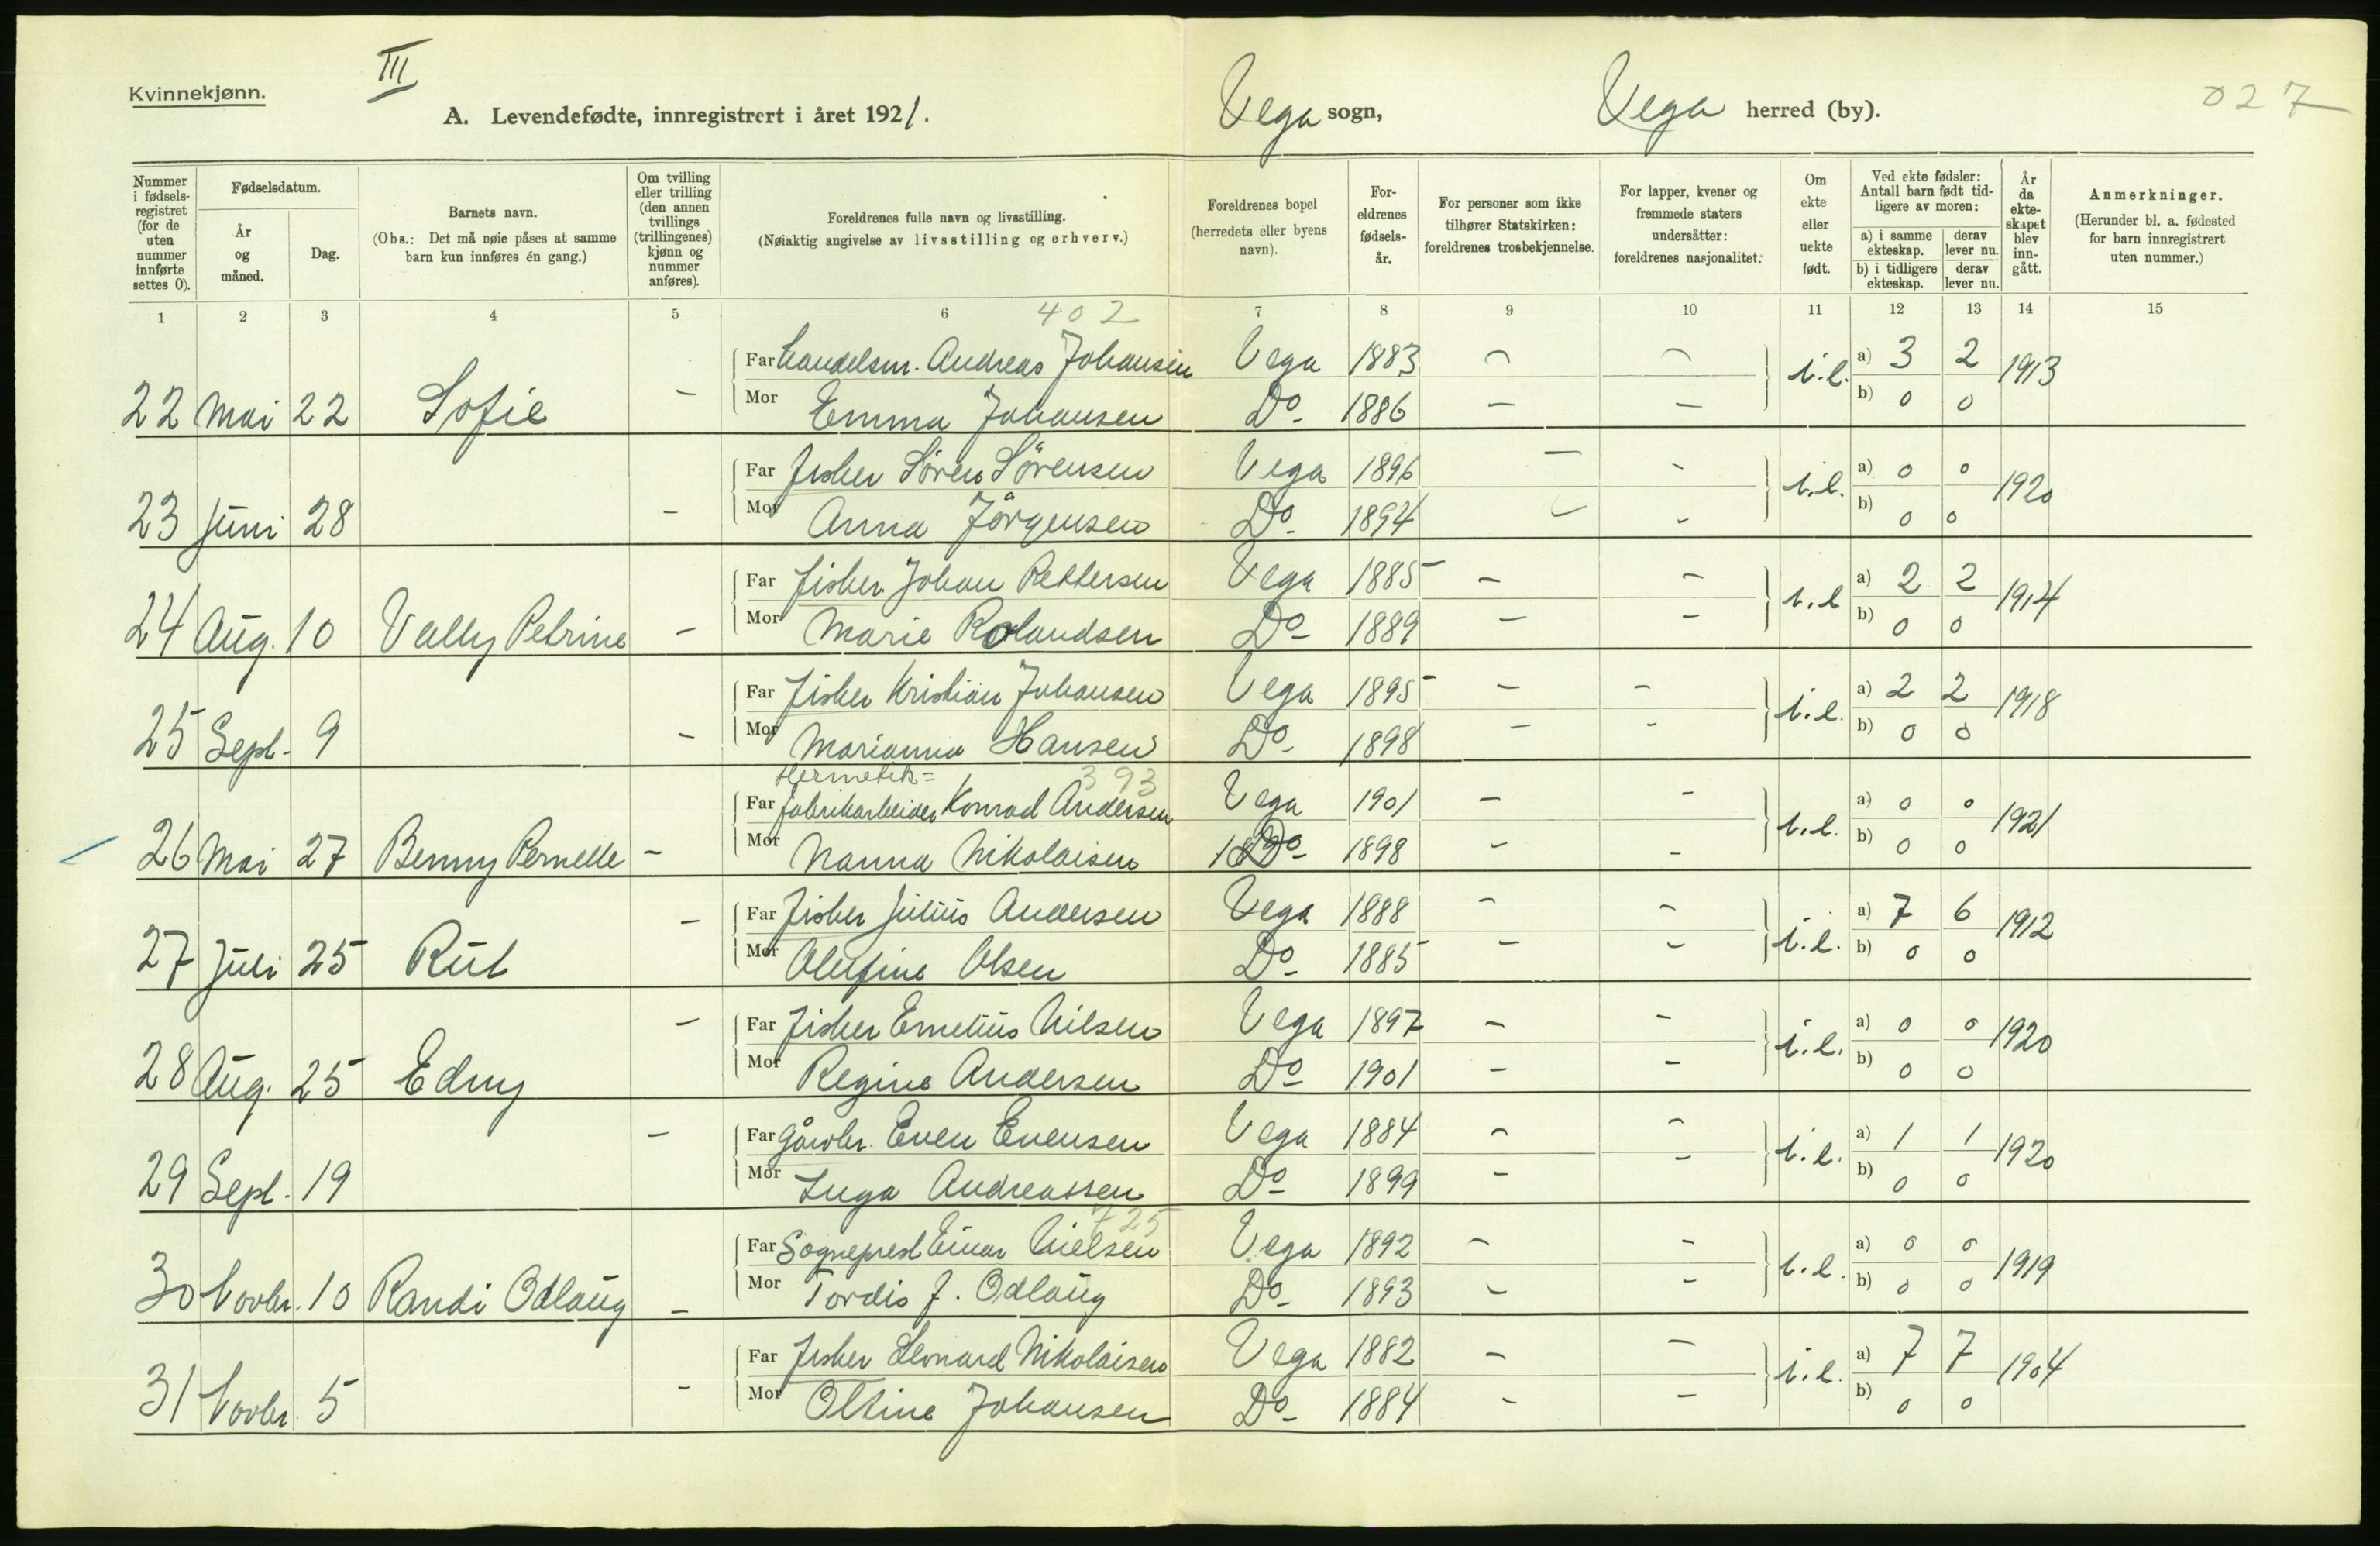 III
Kvinnekjønn.
A. Levendefødte, innregistrert i året 1921.
Vega sogn, Vega herred (by).
027
Nummer i fødsels-registret (for de uten nummer innførte settes 0).
Fødselsdatum.
År og måned.
Dag.
Barnets navn.
(Obs.: Det må nøie påses at samme barn kun innføres én gang.)
Om tvilling eller trilling (den annen tvillings (trillingenes) kjønn og nummer anføres).
Foreldrenes fulle navn og livsstilling.
(Nøiaktig angivelse av livsstilling og erhverv.)
Foreldrenes bopel (herredets eller byens navn).
For-eldrenes fødsels-år.
For personer som ikke tilhører Statskirken: foreldrenes trosbekjennelse.
For lapper, kvener og fremmede staters undersåtter: foreldrenes nasjonalitet.
Om ekte eller uekte født.
Ved ekte fødsler: Antall barn født tid-ligere av moren:
a) i samme ekteskap. derav lever nu.
b) i tidligere ekteskap. derav lever nu.
År da ekte-skapet blev inn-gått.
Anmerkninger.
(Herunder bl. a. fødested for barn innregistrert uten nummer.)
1 2 3 4 5 6 402 7 8 9 10 11 12 13 14 15
Far Handelsm. Andreas Johansen Vega 1883 - - a) 3 2
22 Mai 22 Sofie - Mor Emma Johansen Do- 1886 - - i.e. b) 0 0 1913
Far fisker Søren Sørensen Vega 1896 - - a) 0 0
23 Juni 28 - Mor Anna Jørgensen Do- 1894 - - i.e. b) 0 0 1920
Far fisker Johan Pettersen Vega 1885 - - a) 2 2
24 Aug. 10 Vally Petrine - Mor Marie Rolandsen Do- 1889 - - i.e b) 0 0 1914
Far fisker Kristian Johansen Vega 1895 - - a) 2 2
25 Sept- 9 - Mor Marianna Hansen Do- 1898 - - i.e. b) 0 0 1918
Hermetik= 393
Far fabrikarbeider Konrad Andersen Vega 1901 - - a) 0 0
26 Mai 27 Benny Pernelle - Mor Nanna Nikolaisen Do- 1898 - - i.e. b) 0 0 1921
Far fisker Julius Andersen Vega 1888 - - a) 7 6
27 Juli 25 Rut - Mor Olufine Olsen Do- 1885 - - i.e. b) 0 0 1912
Far fisker Emelius Nilsen Vega 1897 - - a) 0 0
28 Aug. 25 Edny - Mor Regine Andersen Do- 1901 - - i.e. b) 0 0 1920
Far Gårdbr. Even Evensen Vega 1884 - - a) 1 1
29 Sept. 19 - Mor Inga Andreassen Do- 1899 - - i.e. b) 0 0 1920
725
Far Sogneprest Einar Nielsen Vega 1892 - - a) 0 0
30 Novbr. 10 Randi Odlaug - Mor Tordis f. Odlaug Do- 1893 - - i.e. b) 0 0 1919
Far fisker Leonard Nikolaisen Vega 1882 - - a) 7 7
31 Novbr. 5 - Mor Oltine Johansen Do- 1884 - - i.e. b) 0 0 1904